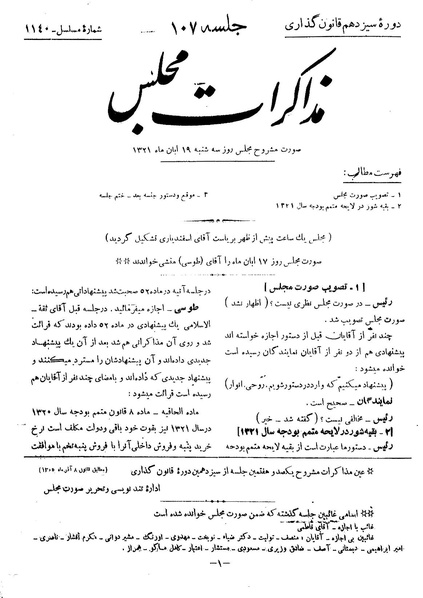 دورهٔ سیزدهم قانون گذاری
جلسه ۱۰۷
شمارهٔ مسلسل - ۱۱۴۰
مذاکرات مجلس
صورت مشروح مجلس روز سه شنبه ۱۹ آبان ماه ۱۳۲۱
فهرست مطالب:
۱ - تصویب صورت مجلس
۲ - بقیه شور در لایحه متمم بودجه سال ۱۳۲۱
۳ - موقع و دستور جلسه بعد - ختم جلسه
( مجلس یك ساعت پیش از ظهر بریاست آقای اسفندیاری تشکیل گردید )
صورت مجلس روز ۱۷ آبان ماه را آقای (طوسی) منشی خواندند
[ ۱ - تصویب صورت مجلس ]
رئیس - در صورت مجلس نظری نیست؟ ( اظهار نشد )
صورت مجلس تصویب شد.
چند نفر از آقایان قبل از دستور اجازه خواسته اند
پیشنهادی هم از دو نفر از آقایان نمایندگان رسیده است
خوانده میشود:
( پیشنهاد میکنیم که وارد دستور شویم. روحی. انوار )
نمایندگان - صحیح است.
رئیس - مخالفی نیست؟ ( گفته شد - خیر )
[ ۲ - بقیه شور در لایحه متمم بودجه سال ۱۳۲۱ ]
رئیس - دستور ما عبارت است از بقیه لایحه متمم بودجه
در جلسه آتیه در ماده ۵۲ صحبت شد پیشنهاداتی هم رسیده است:
طوسی - اجازه میفرمائید. در جلسه قبل آقای ثقة -
الاسلامی یك پیشنهادی در ماده ۵۲ داده بودند که قرائت
شد و روی آن مذاکراتی هم شد بعد از آن یك پیشنهاد
جدیدی داده‌اند و آن پیشنهادشان را مسترد میکنند و
پیشنهاد جدیدی که داده‌اند و بامضای چند نفر از آقایان هم
رسیده است قرائت میشود:
ماده الحاقیه - ماده ۸ قانون متمم بودجه سال ۱۳۲۰
در سال ۱۳۲۱ نیز بقوت خود باقی و دولت مکلف است نرخ
خرید پنبه و فروش داخلی آنرا با فروش پنبه تخم با موافقت
عین مذاکرات مشروح یکصد و هفتمین جلسه از سیزدهمین دورهٔ قانون گذاری
(مطابق قانون ۸ آذر ماه ۱۳۰۵)
ادارهٔ تند نویسی و تحریر صورت مجلس
اسامی غائبین جلسه گذشته که ضمن صورت مجلس خوانده شده است
غائب با اجازه - آقای فاطمی
غائبین بی اجازه - آقایان: منصف - تولیت - دکتر ضیاء - نوبخت - مهدوی - اورنگ - مشیر دوانی - مکرم افشار - ناصری -
امیر ابراهیمی - دبستانی - آصف - صادق وزیری - مسعودی - مستشار - اعتبار
-۱-